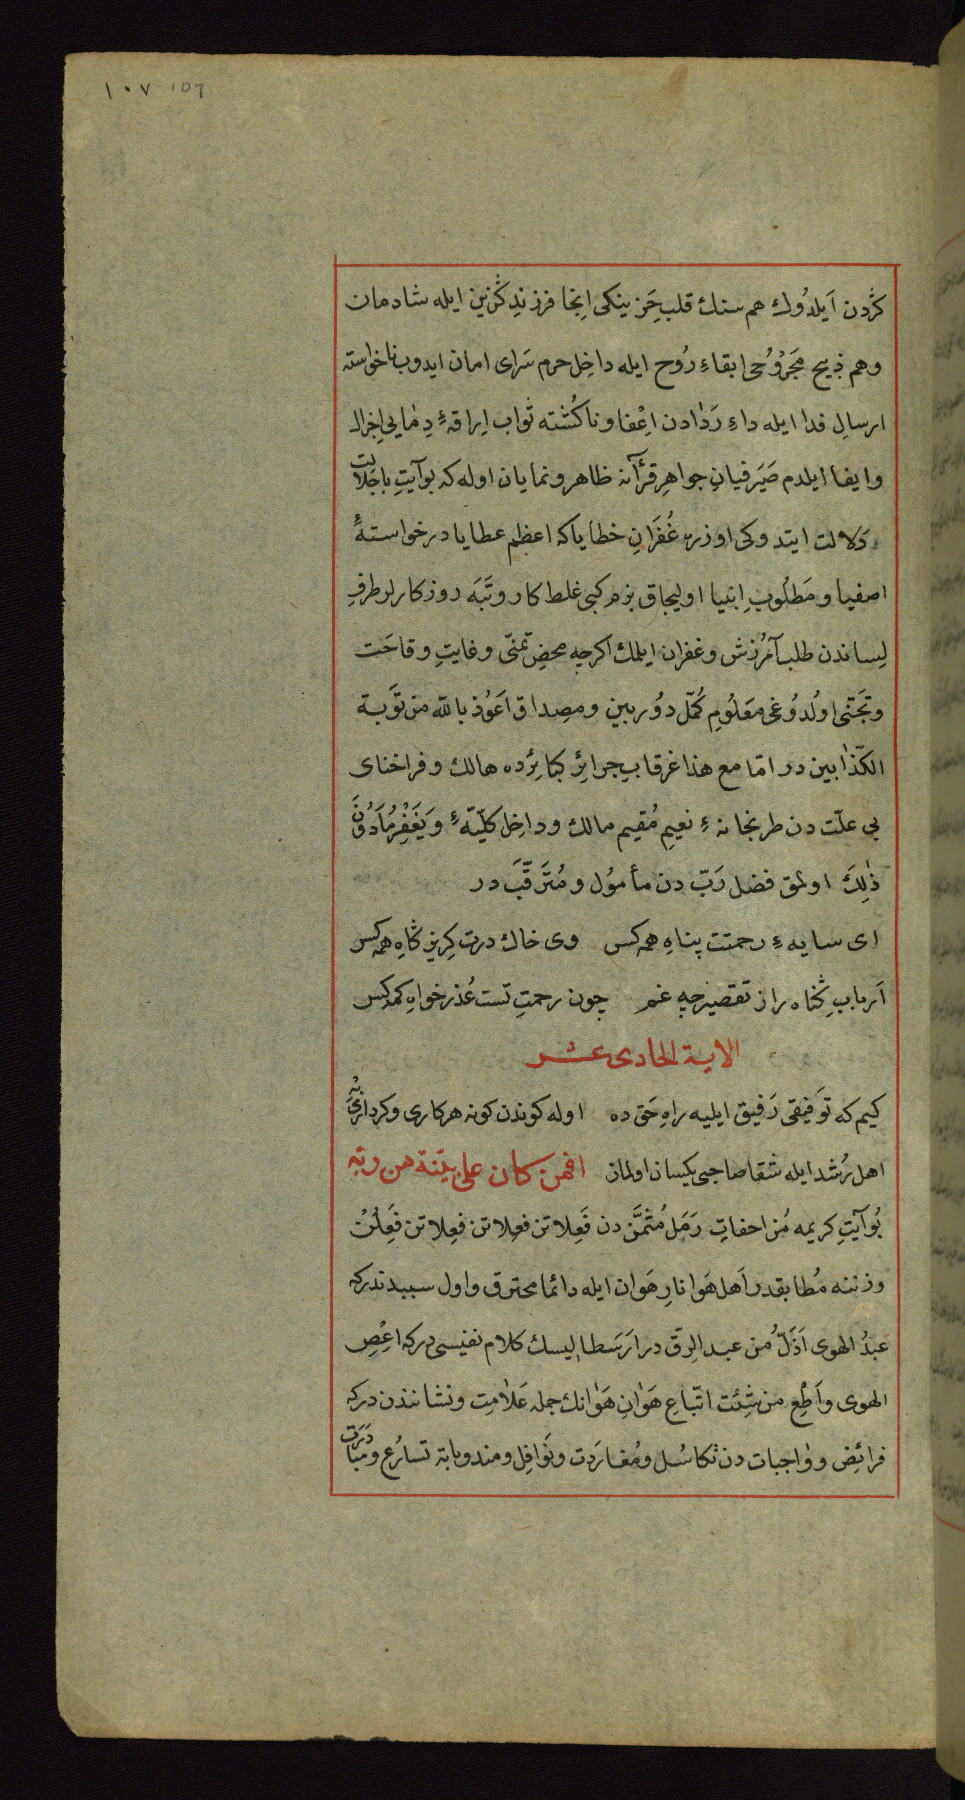 ١٠٧ ١٥٦
كزدن ايلدوك هم سنك قلب حزينكى انجا فرزند كزين ايله شادمان
وهم ذبيح مجروحى ابقاء روح ايله داخل حرم سراى امان ايدوب ناخواسته
ارسال فدا ايله داء رَدٰادن اعفا وناكشته ثواب اراقهٔ دمايى اجزال
وايفا ايلدم صيرفيان جواهر قرآنه ظاهر ونمايان اوله كه بوآيت باجلالت
دلالت ايتدوكى اوزره غفران خطاياكه اعظم عطايا درخواستهٔ
اصفيا ومطلوب انبيا اوليجاق بزم كبى غلط كار وتبه روزكارلر طرف
لساندن طلب آمرزش وغفران ايلمك اكرچه محض تمنّى وغايت وقاحت
وتجنّى اولدوغى معلوم كمّل دوربين ومصداق اعوذ بالله من توبة
الكذّابين در امّا مع هذا غرقاب جرائر كبائرده هالك وفراخناى
بى علّت دن طربخانهٔ نعيم مقيم مالك وداخل كلّيّهٔ ويغفر مادون
ذٰلك اولمق فضل ربّ دن مأمول ومترقّب در
اى سايهء رحمتت پناه همه كس وى خاك درت كريز كاه همه كس
ارباب كناه را ز تقصير چه غم چون رحمت تست عذر خواه همه كس
الاية الحادى عشر
كيم كه توفيقى رفيق ايليه راه حق ده اوله كوندن كونه هر كارى وكردارى به
اهل رشد ايله شقا صاحبى يكسان اولماز افمن كان على بيّنة من ربّه
بوآيت كريمه مزاحفات رمل مثمّن دن فعلاتن فعلاتن فعلاتن فعلن
وزننه مطابقدر اهل هوا نار هوان ايله دائما محترق واول سببدندركه
عبد الهوى اذلّ من عبد الرقّ در ارسطاليسك كلام نفيسى دركه اعص
الهوى واطع من شئت اتّباع هوان هوانك جمله علامت ونشاننذن دركه
فرائض وواجبات دن تكاسل ومفاردت ونوافل ومندوباته تسارع ومبادرت